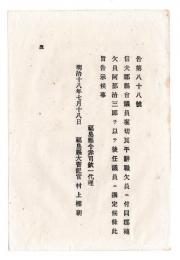 告第八十八號
信夫郡縣會議員堀切良平辭職欠員ニ付同郡補
欠員阿部治三郎ヲ以テ後任議員ニ撰定候條此
旨告示候事
明治十八年七月十八日
福島縣令赤司欽一代理
福島縣大書記官村上楯朝